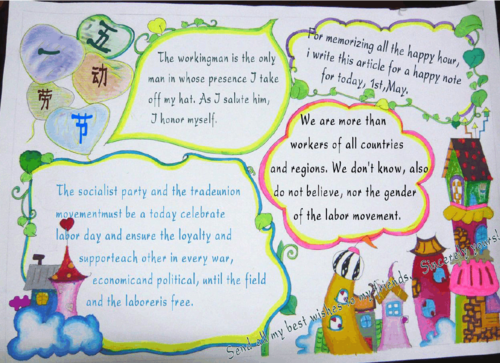 五一
劳动
节
The workingman is the only
man in whose presence I take
off my hat. As I salute him,
I honor myself.
For memorizing all the happy hour,
i write this article for a happy note
for today, 1st,May.
We are more than
workers of all countries
and regions. We don't know, also
do not believe, nor the gender
of the labor movement.
The socialist party and the tradeunion
movementmust be a today celebrate
labor day and ensure the loyalty and
supporteach other in every war,
economicand political, until the field
and the laboreris free.
Send all my best wishes to my friends.
Sincerely yours!